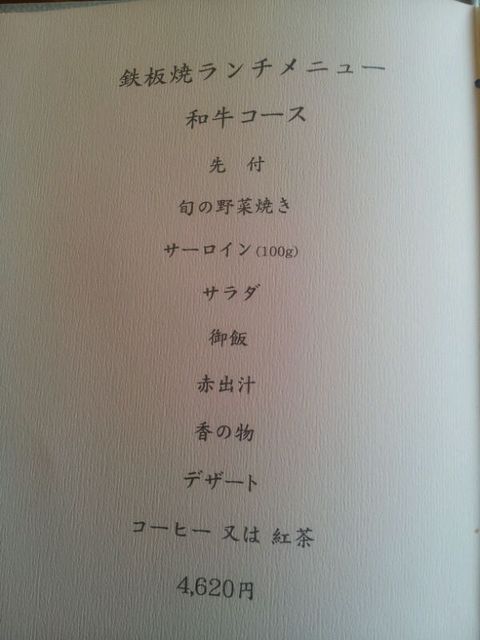 鉄板焼ランチメニュー
和牛コース
先　付
旬の野菜焼き
サーロイン(100g)
サラダ
御飯
赤出汁
香の物
デザート
コーヒー 又は 紅茶
4,620円